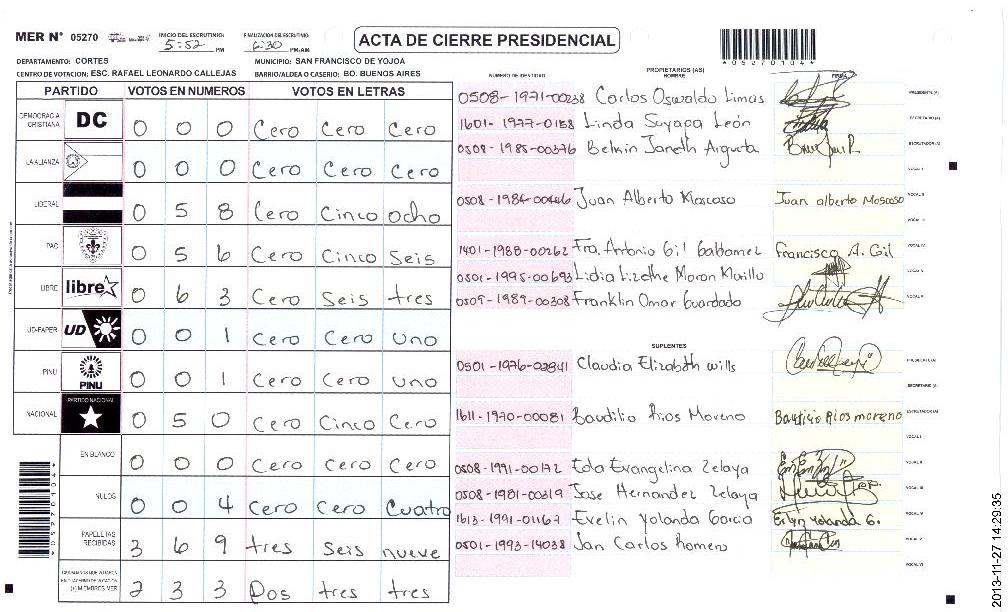 MER N° 05270 INICIO DEL ESCRUTINIO: 5:52 PM FINALIZACION DEL ESCRUTINIO: 6:30 PM/AM
ACTA DE CIERRE PRESIDENCIAL
*05270104*
DEPARTAMENTO: CORTES MUNICIPIO: SAN FRANCISCO DE YOJOA
CENTRO DE VOTACION: ESC. RAFAEL LEONARDO CALLEJAS BARRIO/ALDEA O CASERIO: BO. BUENOS AIRES
PARTIDO VOTOS EN NUMEROS VOTOS EN LETRAS
DEMOCRACIA CRISTIANA DC 0 0 0 Cero Cero Cero
LA ALIANZA 0 0 0 Cero Cero Cero
LIBERAL 0 5 8 Cero Cinco ocho
PAC 0 5 6 Cero Cinco Seis
LIBRE libre 0 6 3 Cero Seis tres
UD-FAPER UD 0 0 1 Cero Cero Uno
PINU PINU 0 0 1 Cero Cero uno
NACIONAL PARTIDO NACIONAL 0 5 0 Cero Cinco Cero
EN BLANCO 0 0 0 Cero Cero Cero
NULOS 0 0 4 Cero Cero Cuatro
PAPELETAS RECIBIDAS 3 6 9 tres seis nueve
CIUDADANOS QUE VOTARON EN CUADERNO DE VOTACION (+) MIEMBROS MER 2 3 3 Dos tres tres
*05270104*
NUMERO DE IDENTIDAD PROPIETARIOS (AS) NOMBRE FIRMA
0508-1971-00238 Carlos Oswaldo Limas PRESIDENTE (A)
1601-1977-0158 Linda Suyapa León SECRETARIO (A)
0508-1985-00376 Belkin Janeth Argueta ESCRUTADOR (A)
VOCAL I
0508-1984-00446 Juan Alberto Moscoso Juan alberto Moscoso VOCAL II
VOCAL III
1401-1988-00262 Fra. Antonio Gil Francisco A. Gil VOCAL IV
0501-1995-00693 Lidia Lizethe Moran VOCAL V
0509-1989-00308 Franklin Omar Guardado VOCAL VI
SUPLENTES
0501-1976-02841 Claudia Elizabeth wills PRESIDENTE (A)
SECRETARIO (A)
1611-1970-00081 Baudilio Rios Moreno Baudilio Rios moreno ESCRUTADOR (A)
VOCAL I
0508-1991-00172 Eda Evangelina Zelaya VOCAL II
0508-1981-00319 Jose Hernandez Zelaya VOCAL III
1613-1991-01167 Evelin Yolanda Garcia Evlyn Yolanda G. VOCAL IV
0501-1993-14038 Jan Carlos Romero VOCAL V
VOCAL VI
2013-11-27 14:29:35